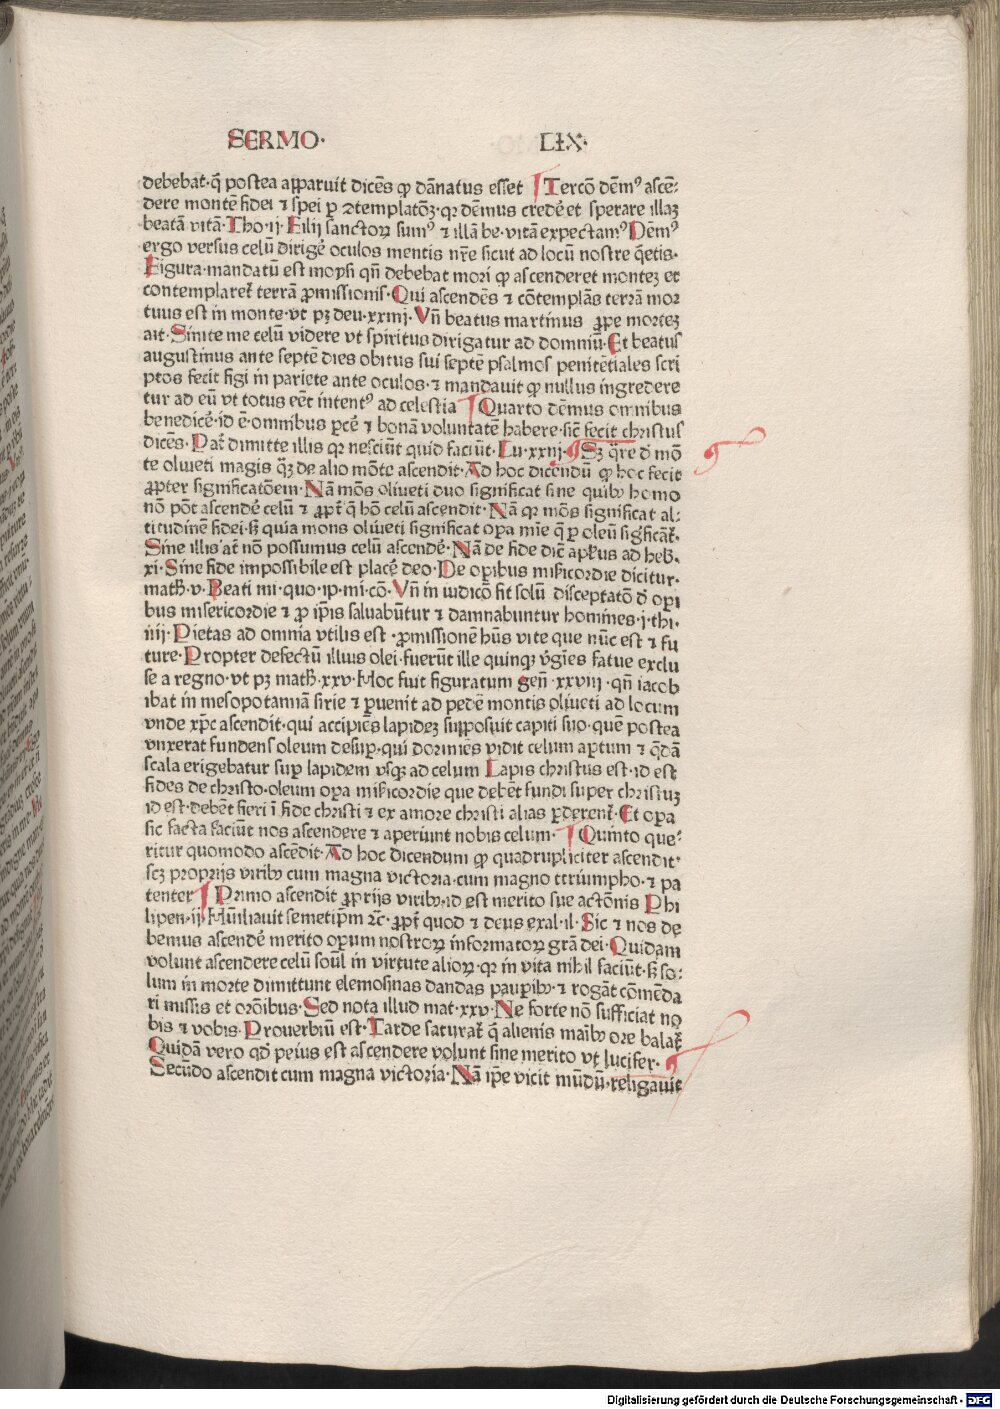 SERMO· LIX·
debebat·q̄ postea apparuit dicēs ꝙ dānatus esset Tercō dēmꝰ ascē-
dere montē fidei ⁊ spei ꝑ ꝯtemplatōꝫ·qꝛ dēmus credēꝛ et sperare illaꝫ
beatā vitā·Tho·ij·Filij sanctoꝝ sumꝰ ⁊ illā be·vitā expectamꝰ Dēmꝰ
ergo versus celū dirigē oculos mentis nr̄e sicut ad locū nostre q̄etis·
Figura·mandatū est moysi qn̄ debebat mori ꝙ ascenderet monteꝫ et
contemplaret̄ terrā ꝓmissionis·Qui ascendēs ⁊ cōtemplās terrā mor
tuus est in monte·vt pꝫ deu·xxxiiij·Vn̄ beatus martinus ꝓpe morteꝫ
ait·Sinite me celū videre vt spiritus dirigatur ad dominū·Et beatus
augustinus ante septē dies obitus sui septē psalmos penitētiales scri
ptos fecit figi in pariete ante oculos·⁊ mandauit ꝙ nullus ingredere
tur ad eū vt totus eēt intentꝰ ad celestia Quarto dēmus omnibus
benedicē·id ē·omnibus ꝑcē ⁊ bonā voluntatē habere·sic̄ fecit christus
dicēs·Pat̄ dimitte illis qꝛ nesciūt quid faciūt·Lu·xxiij·Sꝫ q̄re d̄ mō
te oliueti magis qꝫ de alio mōte ascendit·Ad hoc dicendū ꝙ hoc fecit
ꝓpter significatōem·Nā mōs oliueti duo significat sine quibꝰ homo
nō pōt ascendē celū ⁊ ꝓpt̄ q̄ hō celū ascendit·Nā qꝛ mōs significat al-
titudinē fidei·sꝫ quia mons oliueti significat oꝑa mīe q̄ ꝑ oleū sigficāt̄·
Sine illis at̄ nō possumus celū ascendē·Nā de fide dic̄ apl̄us ad heb·
xi·Sine fide impossibile est placē deo·De oꝑibus misicordie dicitur·
math̄·v·Beati mi·quo·ip·mi·cō·Vn̄ in iudicō fit solū disceptatō d̄ oꝑi
bus misericordie ⁊ ꝓ ip̄is saluabūtur ⁊ damnabuntur homines·j·thi·
iiij·Pietas ad omnia vtilis est·ꝓmissionē hn̄s vite que nūc est ⁊ fu
ture·Propter defectū illius olei·fuerūt ille quinqꝫ v̄gīes fatue exclu
se a regno·vt pꝫ math̄·xxv·Hoc fuit figuratum gen̄·xxviij·qn̄ iacob
ibat in mesopotamiā sirie ⁊ ꝑuenit ad pedē montis oliueti ad locum
vnde xp̄c ascendit·qui accipiēs lapideꝫ supposuit capiti suo·quē postea
vnxerat fundens oleum desuꝑ·qui dormiēs vidit celum aꝑtum ⁊ q̄dā
scala erigebatur suꝑ lapidem vsqꝫ ad celum Lapis christus est·id est
fides de christo·oleum oꝑa misicordie que debēt fundi super christuꝫ
id est·debēt fieri ī fide christi ⁊ ex amore christi alias ꝑderent̄·Et oꝑa
sic facta faciūt nos ascendere ⁊ aperiunt nobis celum· Quinto que-
ritur quomodo ascēdit·Ad hoc dicendum ꝙ quadrupliciter ascendit·
scꝫ proprijs viribꝰ cum magna victoria·cum magno triumpho·⁊ pa
tenter Primo ascendit ꝓprijs viribꝰ·id est merito sue actōnis Phi
lipen·ij·Hūiliauit semetip̄m ⁊c·ꝓpt̄ quod ⁊ deus exal·il·Sic ⁊ nos de
bemus ascendē merito oꝑum nostroꝝ informatoꝝ grā dei·Quidam
volunt ascendere celū soūl in virtute alioꝝ·qꝛ in vita nihil faciūt·sꝫ so-
lum in morte dimittunt elemosinas dandas pauꝑibꝰ·⁊ rogāt cōmēda
ri missis et orōnibus·Sed nota illud mat·xxv·Ne forte nō sufficiat no
bis ⁊ vobis·Prouerbiū est·Tarde saturat̄ q̄ alienis maībꝰ ore balat̄
Quidā vero qd̄ peius est ascendere volunt sine merito vt lucifer·
Secūdo ascendit cum magna victoria·Nā ip̄e vicit mūdū·religauit
Digitalisierung gefördert durch die Deutsche Forschungsgemeinschaft - DFG